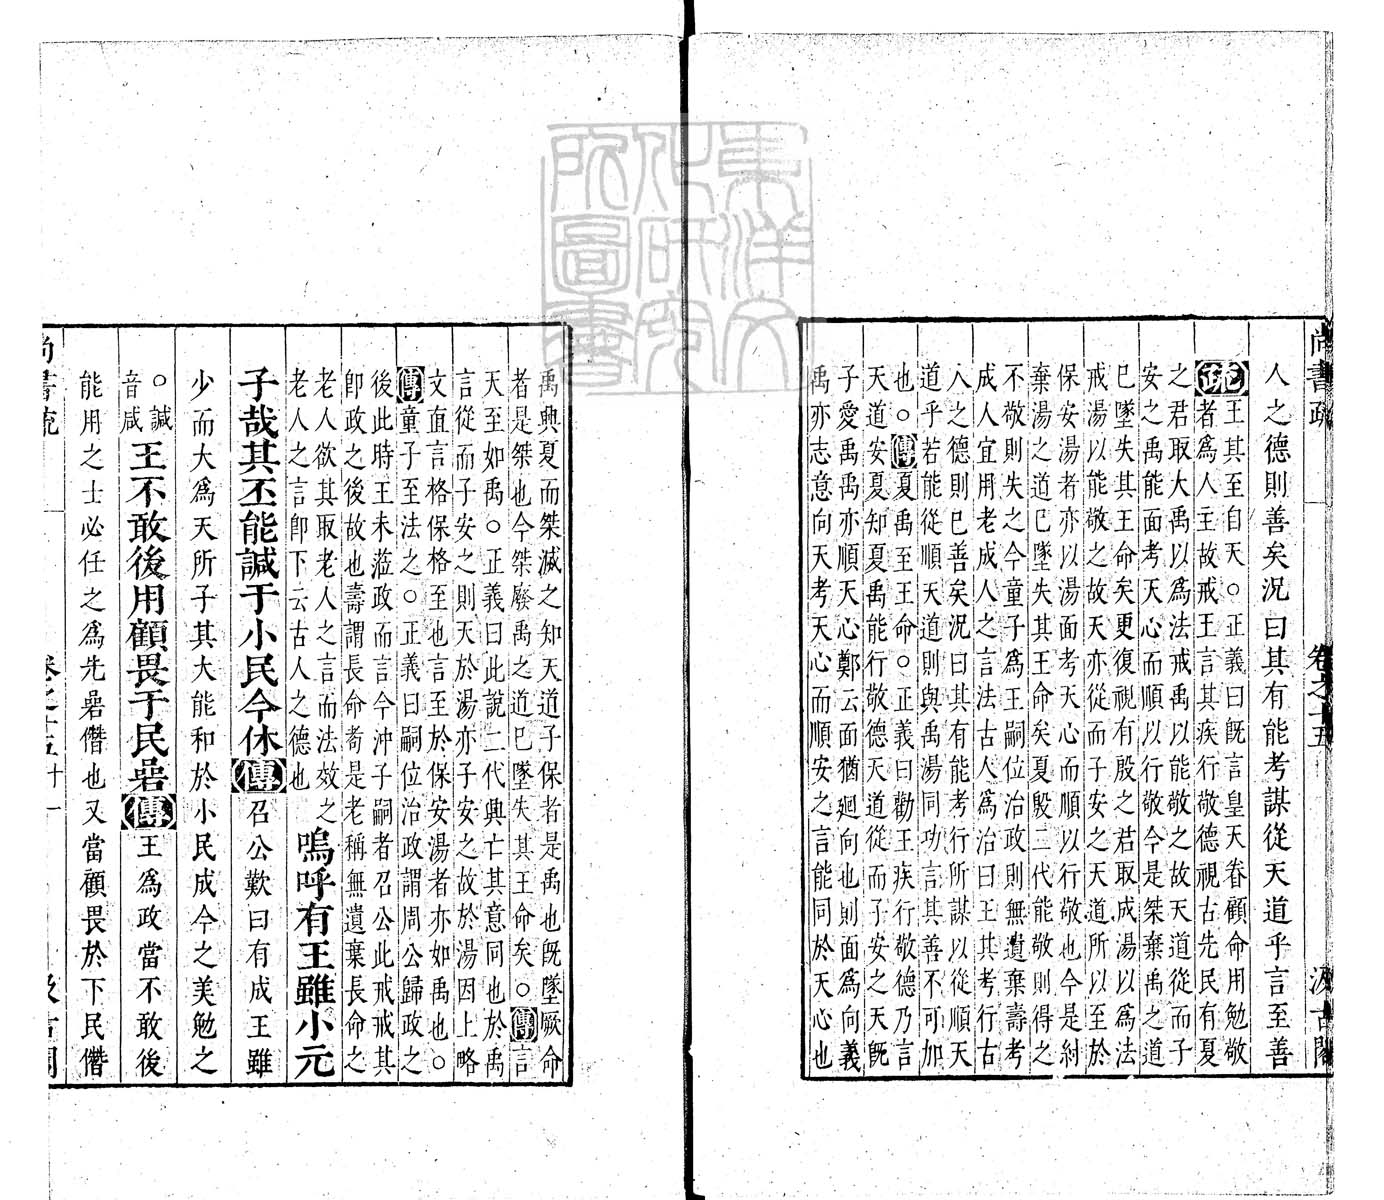 尚書疏 卷之十五 汲古閣
人之德則善矣況曰其有能考謀從天道乎言至善
疏王其至自天○正義曰旣言皇天眷顧命用勉敬
者爲人主故戒王言其疾行敬德視古先民有夏
之君取大禹以爲法戒禹以能敬之故天道從而子
安之禹能面考天心而順以行敬今是桀棄禹之道
巳墜失其王命矣更復視有殷之君取成湯以爲法
戒湯以能敬之故天亦從而子安之天道所以至於
保安湯者亦以湯面考天心而順以行敬也今是紂
棄湯之道巳墜失其王命矣夏殷二代能敬則得之
不敬則失之今童子爲王嗣位治政則無遺棄壽考
成人宜用老成人之言法古人爲治曰王其考行古
人之德則巳善矣況曰其有能考行所謀以從順天
道乎若能從順天道則與禹湯同功言其善不可加
也○傳夏禹至王命○正義曰勸王疾行敬德乃言
天道安夏知夏禹能行敬德天道從而子安之天旣
子愛禹禹亦順天心鄭云面猶迴向也則面爲向義
禹亦志意向天考天心而順安之言能同於天心也
禹興夏而桀滅之知天道子保者是禹也旣墜厥命
者是桀也今桀廢禹之道巳墜失其王命矣○傳言
天至如禹○正義曰此說二代興亡其意同也於禹
言從而子安之則天於湯亦子安之故於湯因上略
文直言格保格至也言至於保安湯者亦如禹也○
傳童子至法之○正義曰嗣位治政謂周公歸政之
後此時王未蒞政而言今沖子嗣者召公此戒戒其
卽政之後故也壽謂長命耇是老稱無遺棄長命之
老人欲其取老人之言而法效之
老人之言卽下云古人之德也
嗚呼有王雖小元
子哉其丕能諴于小民今休傳召公歎曰有成王雖
少而大爲天所子其大能和於小民成今之美勉之
○諴
音咸
王不敢後用顧畏于民碞傳王爲政當不敢後
能用之士必任之爲先碞僭也又當顧畏於下民僭
尚書疏 卷之十五 十一 汲古閣
東洋文化研究所圖書